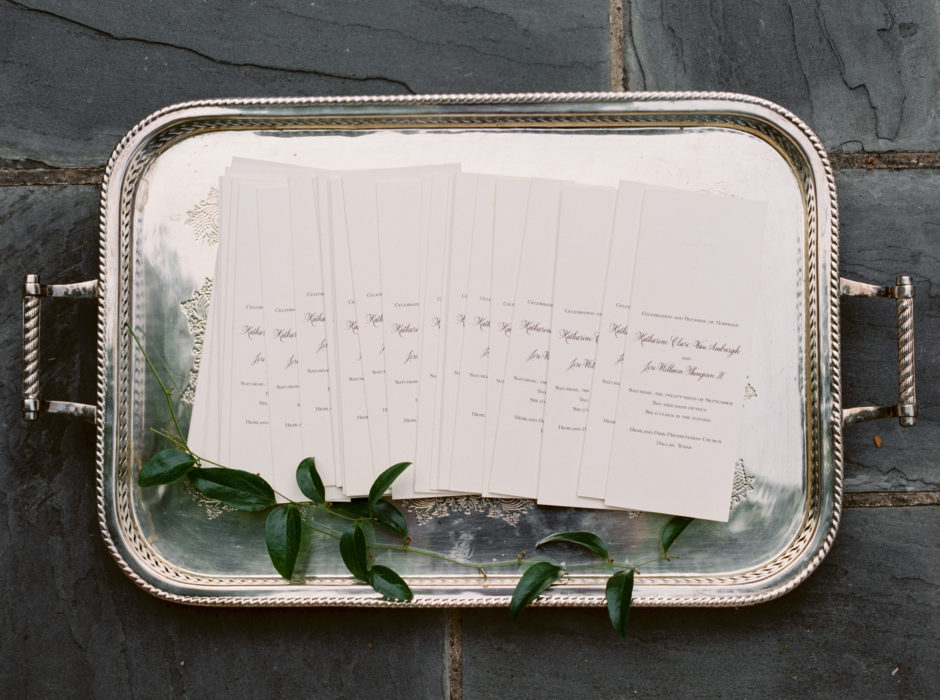 Celebration and Housing of Marriage
Katharine Clare Van Amburgh
and
Jere William Thompson III
Saturday, the twenty-sixth of September
Two thousand fifteen
Six o'clock in the evening
Highland Park Presbyterian Church
Dallas, Texas